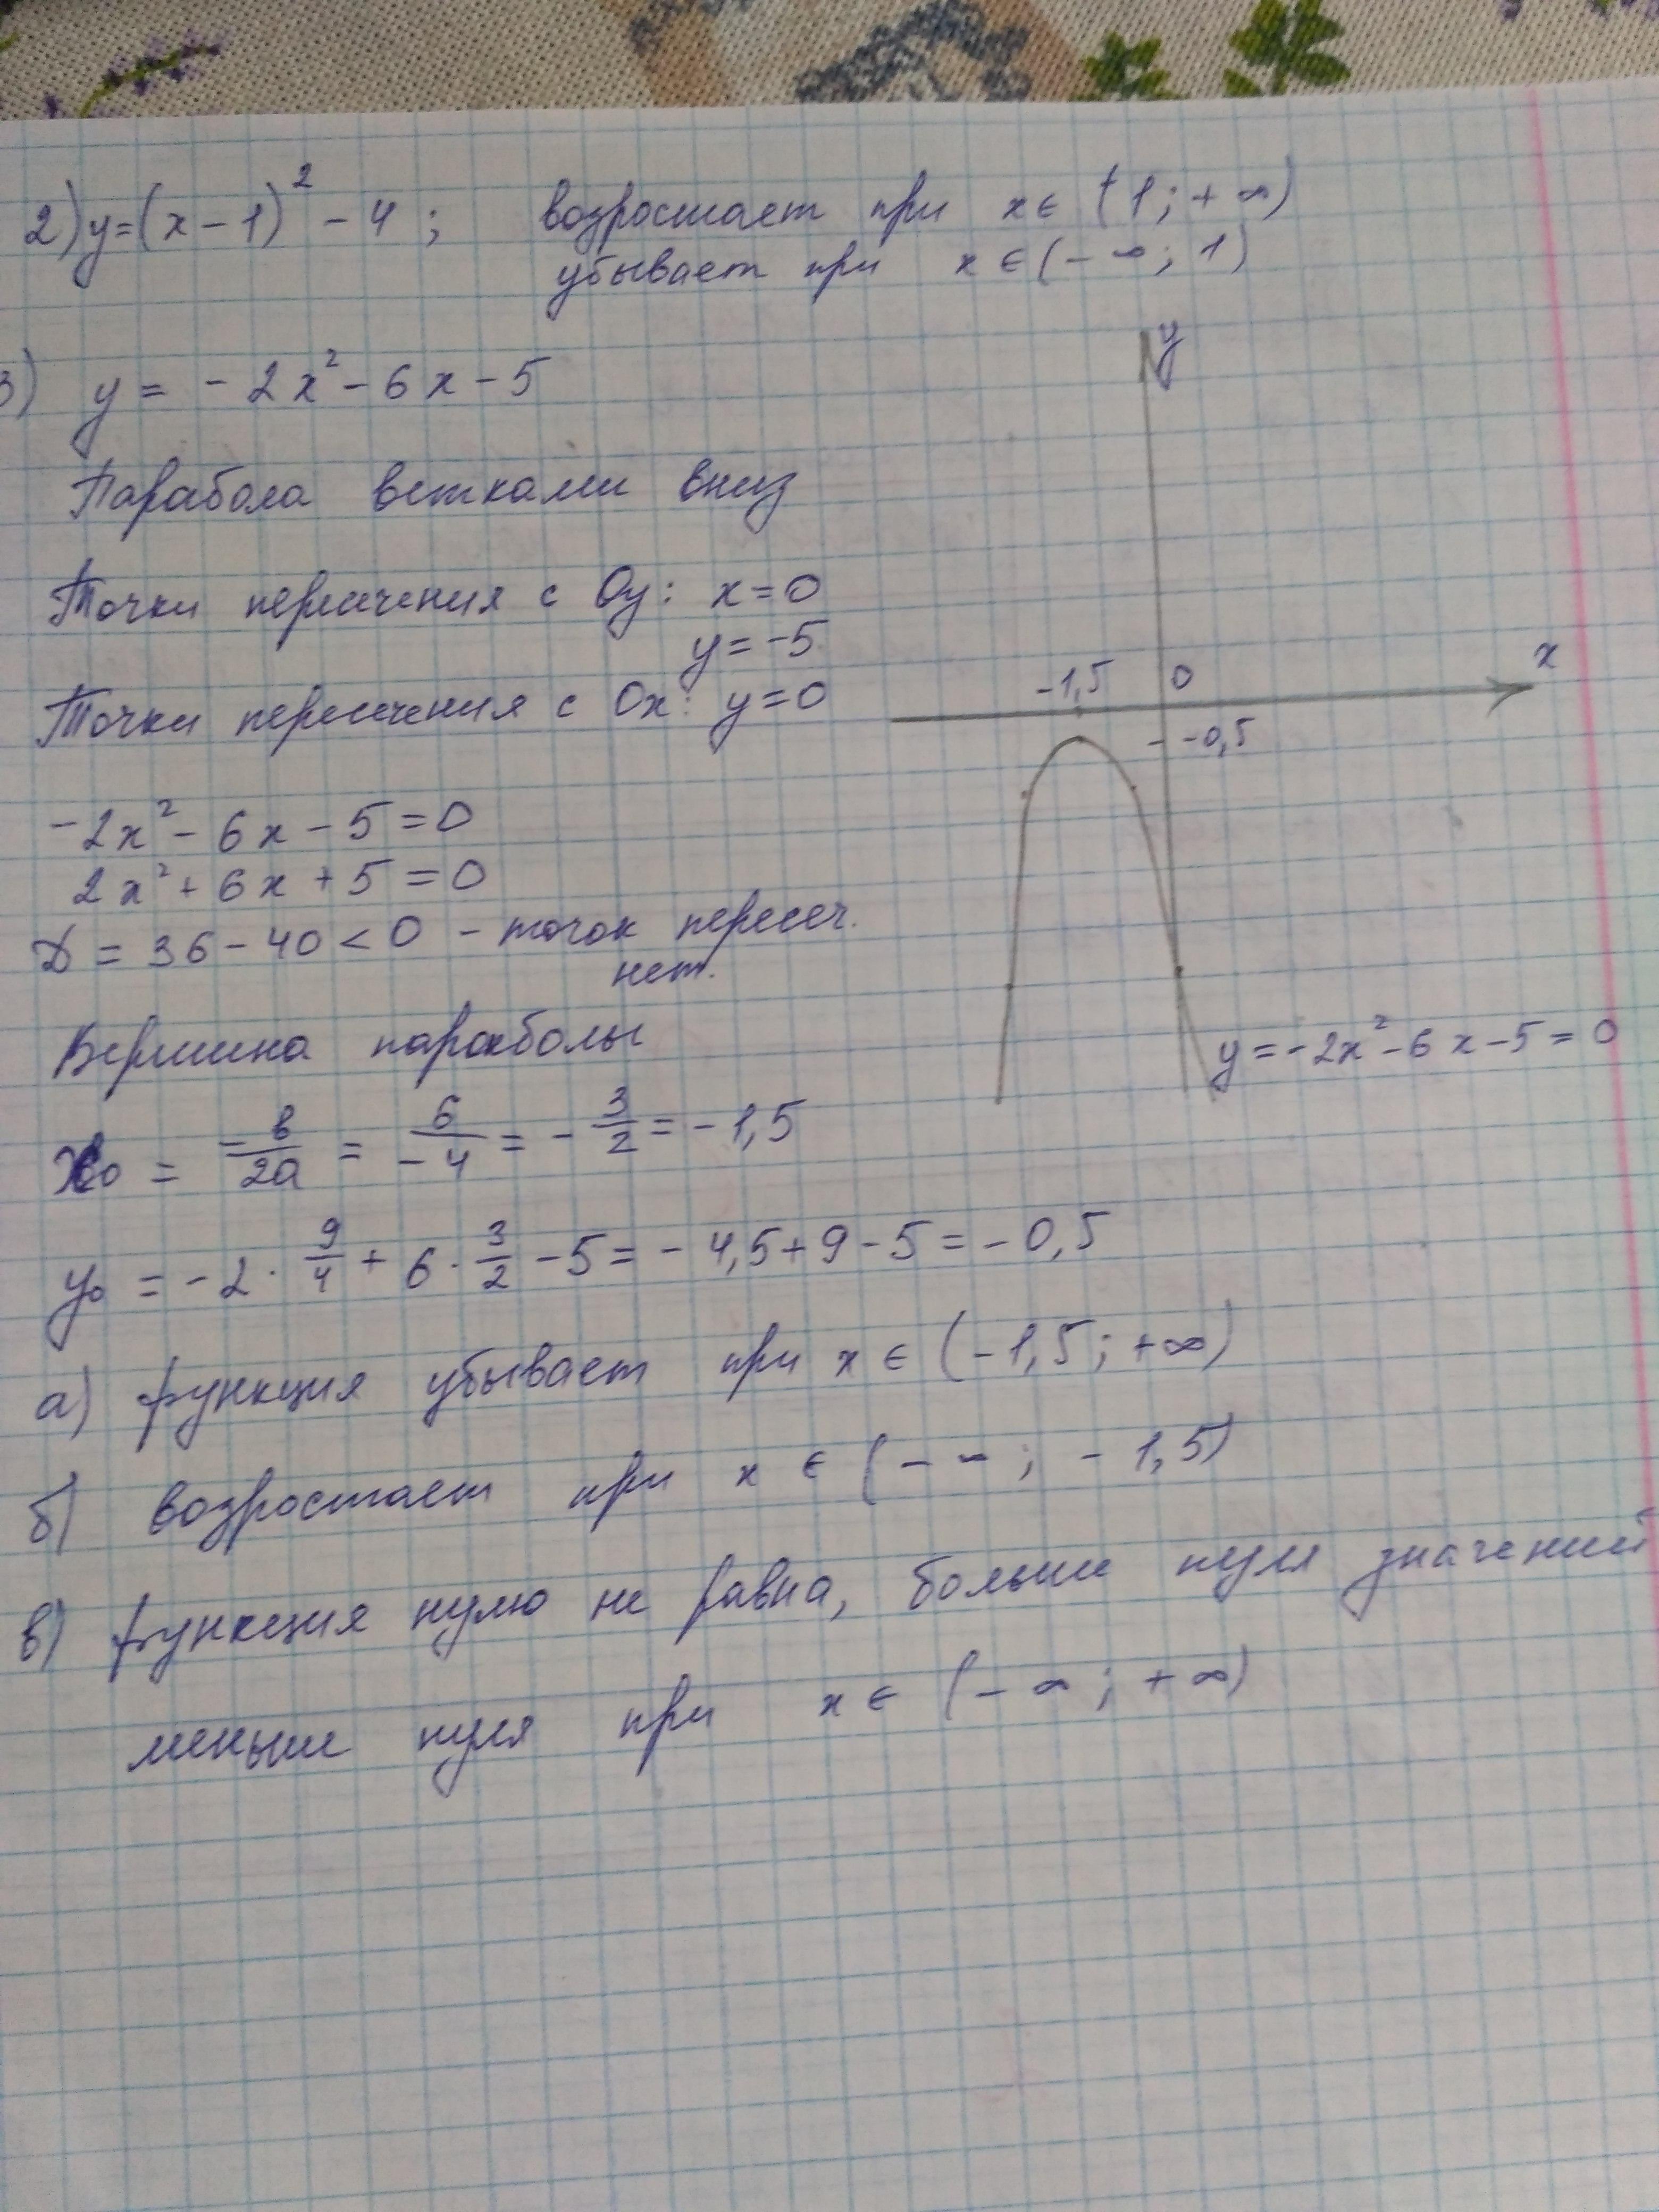 2) y=(x-1)² - 4 ; возростает при x ∈ (1 ; + ∞)
убывает при x ∈ (- ∞ ; 1)
3) y = - 2x² - 6x - 5
Парабола ветками вниз
Точки пересечения с Oy: x = 0
y = -5
Точки пересечения с Ox: y = 0
-2x² - 6x - 5 = 0
2x² + 6x + 5 = 0
D = 36 - 40 < 0 - точок пересеч.
нет.
Вершина параболы
x₀ = -b/2a = 6/-4 = - 3/2 = - 1,5
y₀ = - 2 · 9/4 + 6 · 3/2 - 5 = - 4,5 + 9 - 5 = - 0,5
а) функция убывает при x ∈ (- 1,5 ; +∞)
б) возростает при x ∈ (- ∞ ; - 1,5)
в) функция нулю не равна, больше нуля значений
меньше нуля при x ∈ (- ∞ ; + ∞)
y
x
-1,5
0
-0,5
y = - 2x² - 6x - 5 = 0